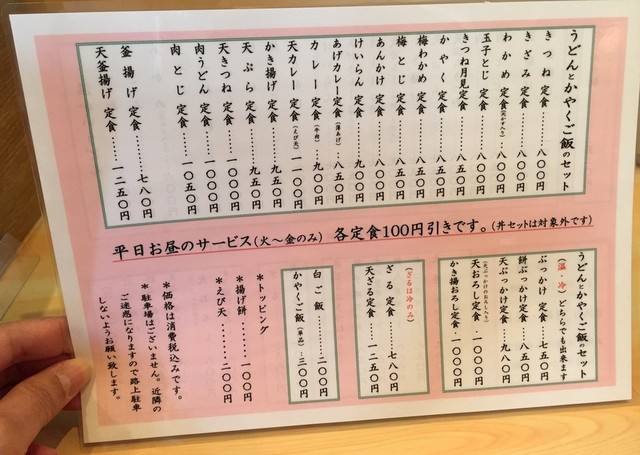 うどんとかやくご飯のセット
きつね 定食……八〇〇円
きざみ 定食……八〇〇円
わかめ 定食(天かす入り)……八〇〇円
玉子とじ 定食……八〇〇円
きつね月見定食……八五〇円
かやく 定食……八五〇円
梅わかめ 定食……八〇〇円
梅とじ 定食……八五〇円
あんかけ 定食……八〇〇円
けいらん 定食……九〇〇円
あげカレー定食(薄あげ)…八五〇円
カレー 定食(牛肉)…九〇〇円
天カレー 定食(えび天)一一〇〇円
かき揚げ 定食……九五〇円
天ぷら 定食……九五〇円
天きつね 定食……一〇〇〇円
肉うどん 定食……一〇〇〇円
肉とじ 定食……一〇五〇円
釜揚げ 定食……七八〇円
天釜揚げ 定食……一二五〇円
平日お昼のサービス(火〜金のみ) 各定食100円引きです。(丼セットは対象外です)
うどんとかやくご飯のセット
(温・冷)どちらでも出来ます
ぶっかけ 定食……七五〇円
餅ぶっかけ定食……八五〇円
天ぶっかけ定食……九八〇円
天おろし定食……一〇〇〇円
かき揚おろし定食…一〇〇〇円
(ざるは冷のみ)
ざる 定食……七八〇円
天ざる 定食……一二五〇円
白ご飯………二〇〇円
かやくご飯(単品)…三〇〇円
*トッピング
*揚げ餅………一〇〇円
*えび天………二〇〇円
*価格は消費税込みです。
*駐車場はございません。近隣の
ご迷惑になりますので路上駐車
しないようお願い致します。